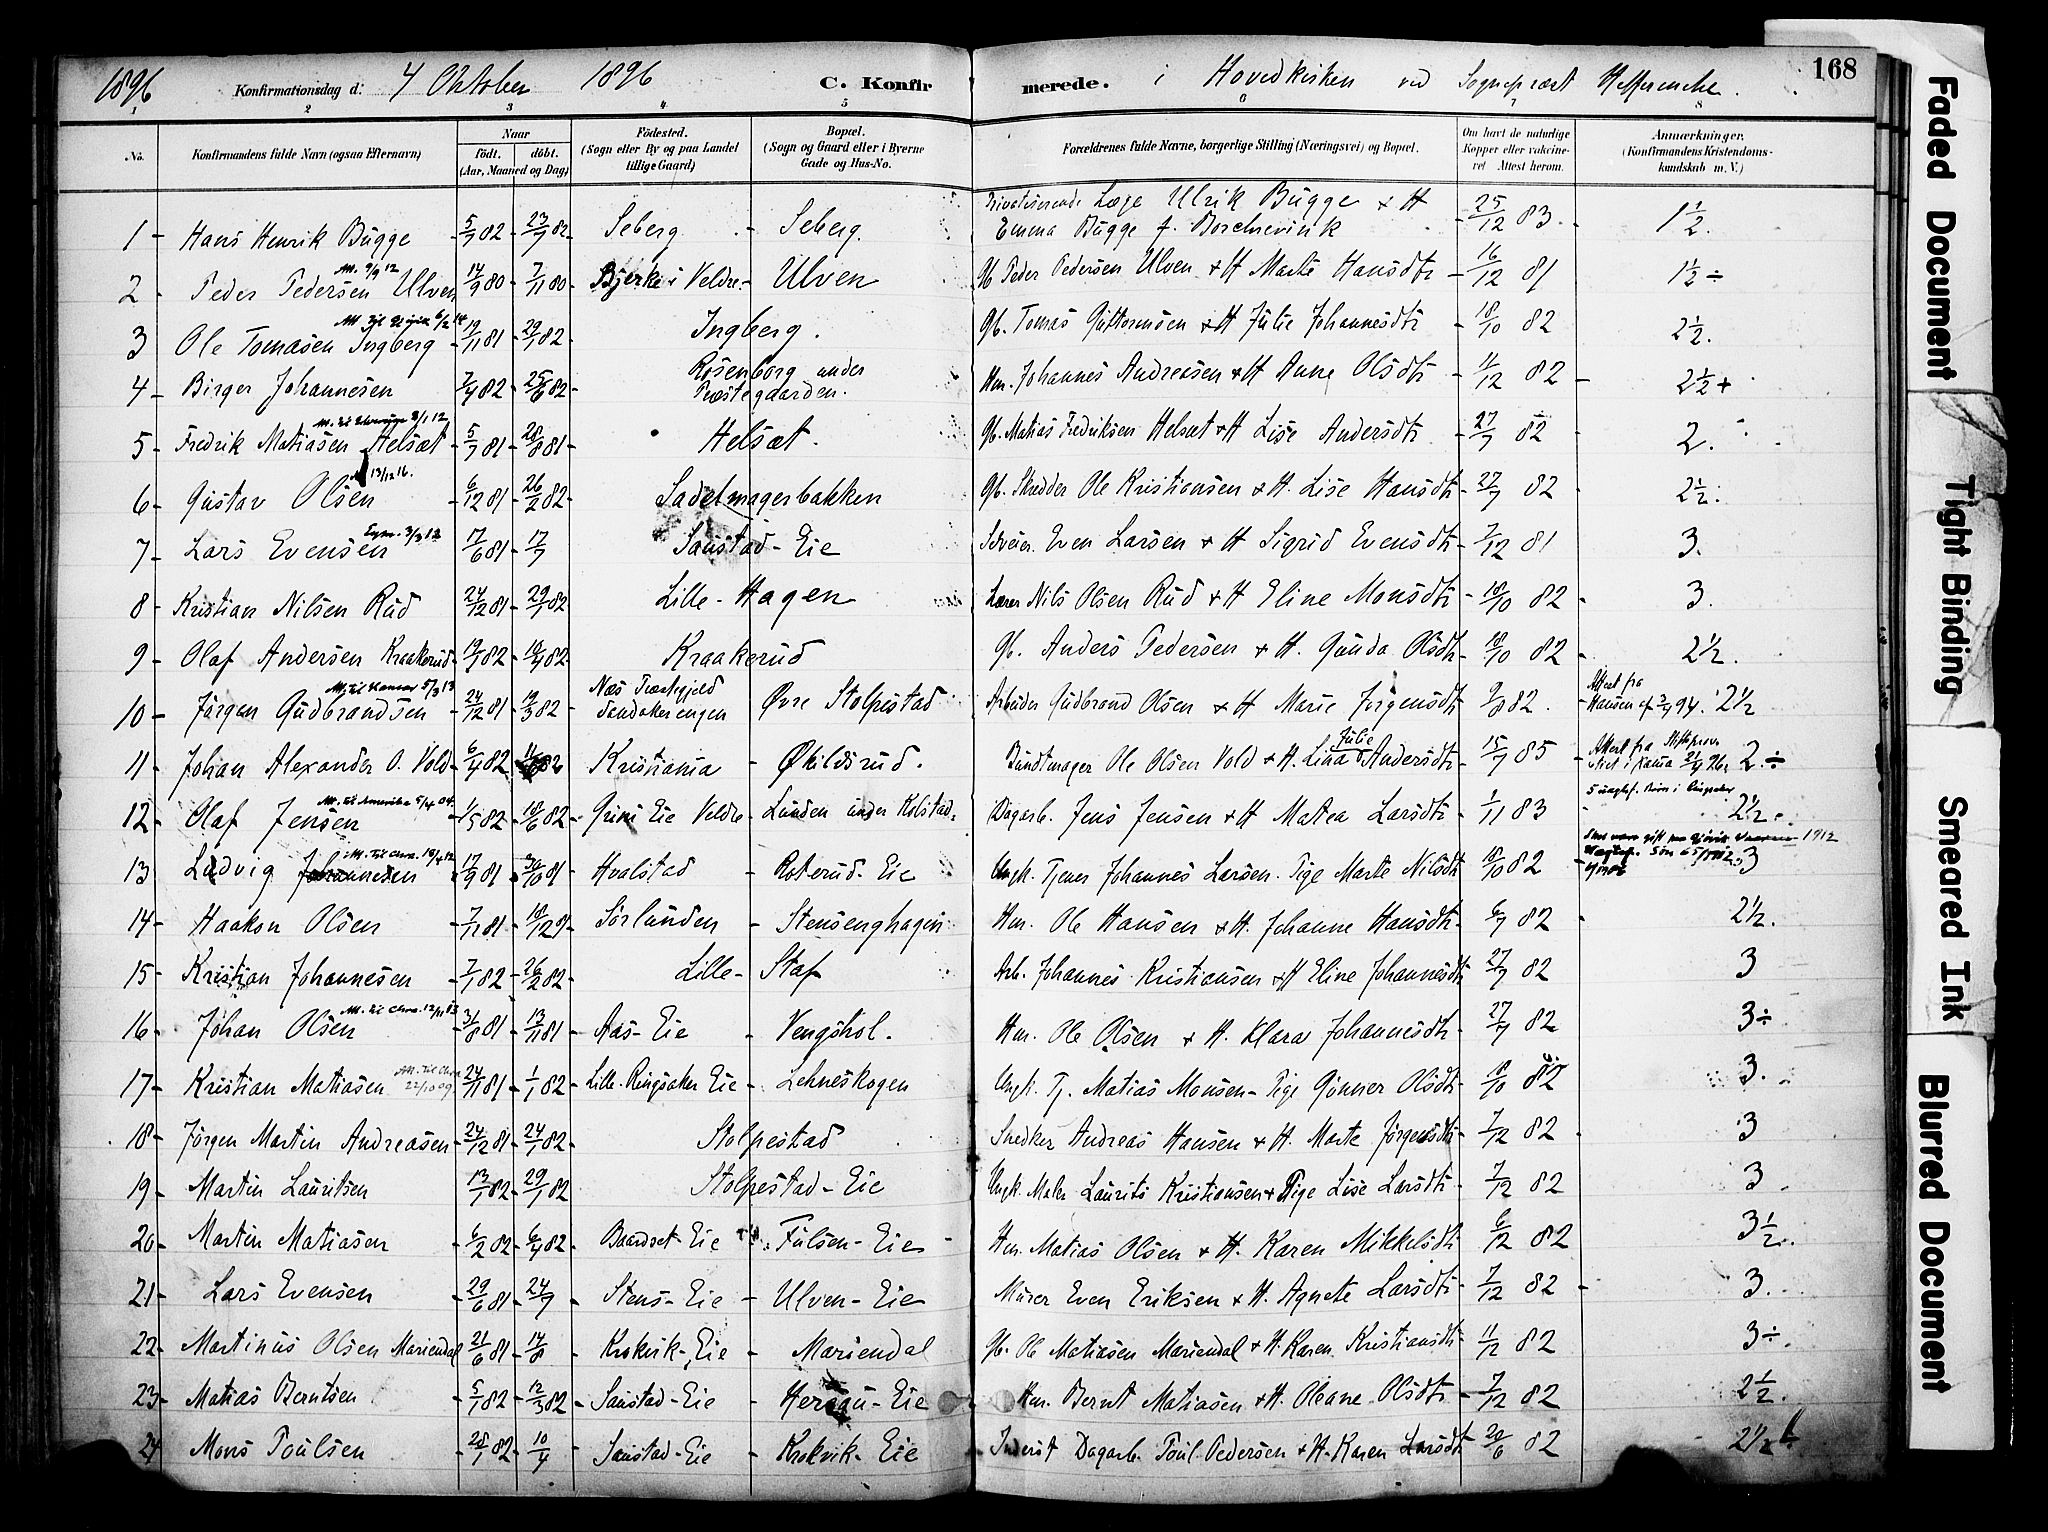 1896 Konfirmationsdag d: 4 Oktober 1896 C. Konfirmerede. i Hovedkirken ved Sognepræst 168
1 2 3 4 5 6 7 8
No. Konfirmandens fulde Navn (ogsaa Efternavn) Naar født. døbt. (Aar, Maaned og Dag) Födested. (Sogn eller By og paa Landet tillige Gaard) Bopæl. (Sogn og Gaard eller i Byerne Gade og Hus-No. Forældrenes fulde Navne, borgerlige Stilling (Næringsvei) og Bopæl. Om havt de naturlige Kopper eller vakcineret Attest herom. Anmærkninger. (Konfirmandens Kristendomskundskab m. V.)
1 - Hans Henrik Bugge - 5/7 82 - 23/9 82 - Seberg - Seberg. Privatiserende Læge Ulrik Bugge + H Emma Bugge f. Borchrevink - 25/12 83. - 1 1/2.
2 - Peder Pedersen Ulven 14/9 80 - 7/11 80 - Bjerke i Veldre - Ulven Gb Peder Pedersen Ulven + H Marte Hansdtr - 16/12 81 1 1/2 ÷
3 Ole Tomasen Ingberg - 19/11 81 - 29/1 82 - Ingberg. Gb. Tomas Guttormsen + H Julie Johannesdtr - 18/10 82 2 1/2.
4 - Birger Johannesen 7/4 82 - 25/6 82 - Rosenborg under Præstegaarden. Hm. Johannes Andreasen + H Anne Olsdtr - 11/12 82 - 2 1/2 +
5 - Fredrik Matiasen Helsæt - 5/7 81 - 28/8 81 - Helsæt. Gb. Matias Fredriksen Helsæt + H Lise Andersdtr - 27/7 82 - 2.
6 - Gustav Olsen 13/12 16. - 6/12 81 - 26/2 82 - Sadelmagerbakken Gb. Skredder Ole Kristiansen + H. Lise Hansdtr - 27/7 82 2 1/2.
7 - Lars Evensen - 17/6 81 - 17/7 Saustad - Eie Even Larsen + H Sigrid Evensdtr - 7/12 81 3.
8 - Kristian Nilsen Rud 24/12 81 - 29/1 82 Lille - Hagen Lærer Nils Olsen Rud + H Eline Monsdtr - 18/10 82 - 3.
9 - Olaf Andersen Kraakerud - 19/1 82 - 10/4 82 - Kraakerud Gb. Anders Pedersen + H. Gunda Olsdtr - 18/10 82 - 2 1/2.
10 - Jørgen Gudbrandsen M. til Hamar 5/3 13 - 24/12 81 - 19/3 82 Næs Præstegjeld Øvre Stolpestad Arbeider Gudbrand Olsen + H Marie Jørgensdtr 9/8 82. Attest fra Hansen af 94. 2 1/2
11 - Johan Alexander O. Vold - 6/4 82 Kristiania - Økildsrud. Buntmager Ole Olsen Vold + H. Lina Julie Andersdtr - 15/7 85 - Attest fra 2. ÷
12 - Olaf Jensen M. til Amerika 5/4 04. - 1/5 82 - 18/6 82 - Grini Eie Veldre - Lunden under Kolstad. Dagarb. Jens Jensen + H Matea Larsdtr - 1/11 83 2 1/2.
13 - Ludvig Johannesen - 17/9 81 - 30/10 81 Hvalstad - Roterud - Eie Ungk. Tjener Johannes Larsen. Pige Marte Nilsdtr 18/10 82 - 1912 3
14 - Haakon Olsen - 7/11 81 - 18/12 Sørlunden - Stensenghagen Hm. Ole Hansen + H. Johanne Hansdtr - 6/7 82 2 1/2.
15 - Kristian Johannesen - 7/1 82 - 26/2 82 - Lille - Staf Arb. Johannes Kristiansen + H Eline Johannesdtr 27/7 82 3
16 - Johan Olsen - 31/8 81 - 13/11 81 - Aas - Eie - Vengshol. Hm. Ole Olsen + H. Klara Johannesdtr - 27/7 82 3 ÷
17 - Kristian Matiasen M. til Chra 22/10 09. 24/11 81 - 1/1 82 - Lille Ringsaker Eie - Lehneskogen Ungk. Tj. Matias Monsen - Pige Gunner Olsdtr - 18/10 82 3.
18 - Jørgen Martin Andreasen - 24/12 81 - 24/1 82 - Stolpestad Snedker Andreas Hansen + H. Marte Jørgensdtr - 7/12 82 3
19 - Martin Lauritsen 13/1 82 - 29/1 82 Stolpestad - Eie Ungk. Maler Laurits Kristiansen + Pige Lise Larsdtr - 7/12 82 3
20 - Martin Matiasen - 6/2 82 - 6/4 82 - Baardset - Eie Fulsen - Eie Hm. Matias Olsen + H. Karen Mikkelsdtr 6/12 82 3 1/2.
21 - Lars Evensen - 29/6 81 - 24/7 - Stens - Eie - Ulven - Eie Murer Even Eriksen + H. Agnete Larsdtr - 7/12 82 - 3.
22 - Martinus Olsen Mariendal 21/6 81 - 14/8 - Krokvik - Eie - Mariendal Gb. Ole Matiasen Mariendal + H. Karen Kristiansdtr - 11/12 82 3 ÷
23 - Matias Berntsen - 5/1 82 - 12/3 82 - Saustad - Eie - Eie Hm. Bernt Matiasen + H. Oleane Olsdtr - 7/12 82 2 1/2.
24 - Mons Poulsen - 25/1 82 - 10/4 Saustad - Eie - Krokvik - Eie Inderst Dagarb. Poul Pedersen + H. Karen Larsdtr 20/6 82 2 1/2
Faded Document
Tight Binding
Smeared Ink
Blurred Document